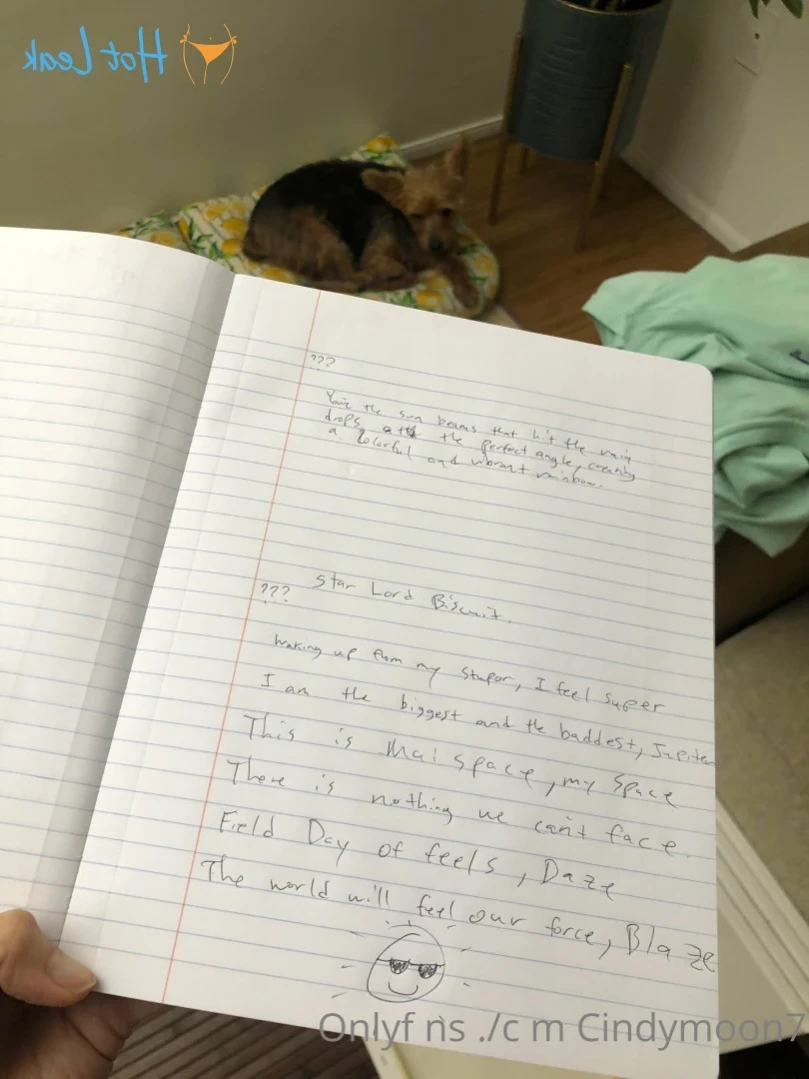 Hot Leak
???
You're the sun beams that hit the rain
drops at the perfect angle, creating
a colorful and vibrant rainbow.
Star Lord Biscuit.
???
Waking up from my stupor, I feel super
I am the biggest and the baddest, Jupiter
This is Mai space, my space
There is nothing we can't face.
Field Day of feels, Daze
The world will feel our force, Blaze
Onlyf ns ./c m Cindymoon7